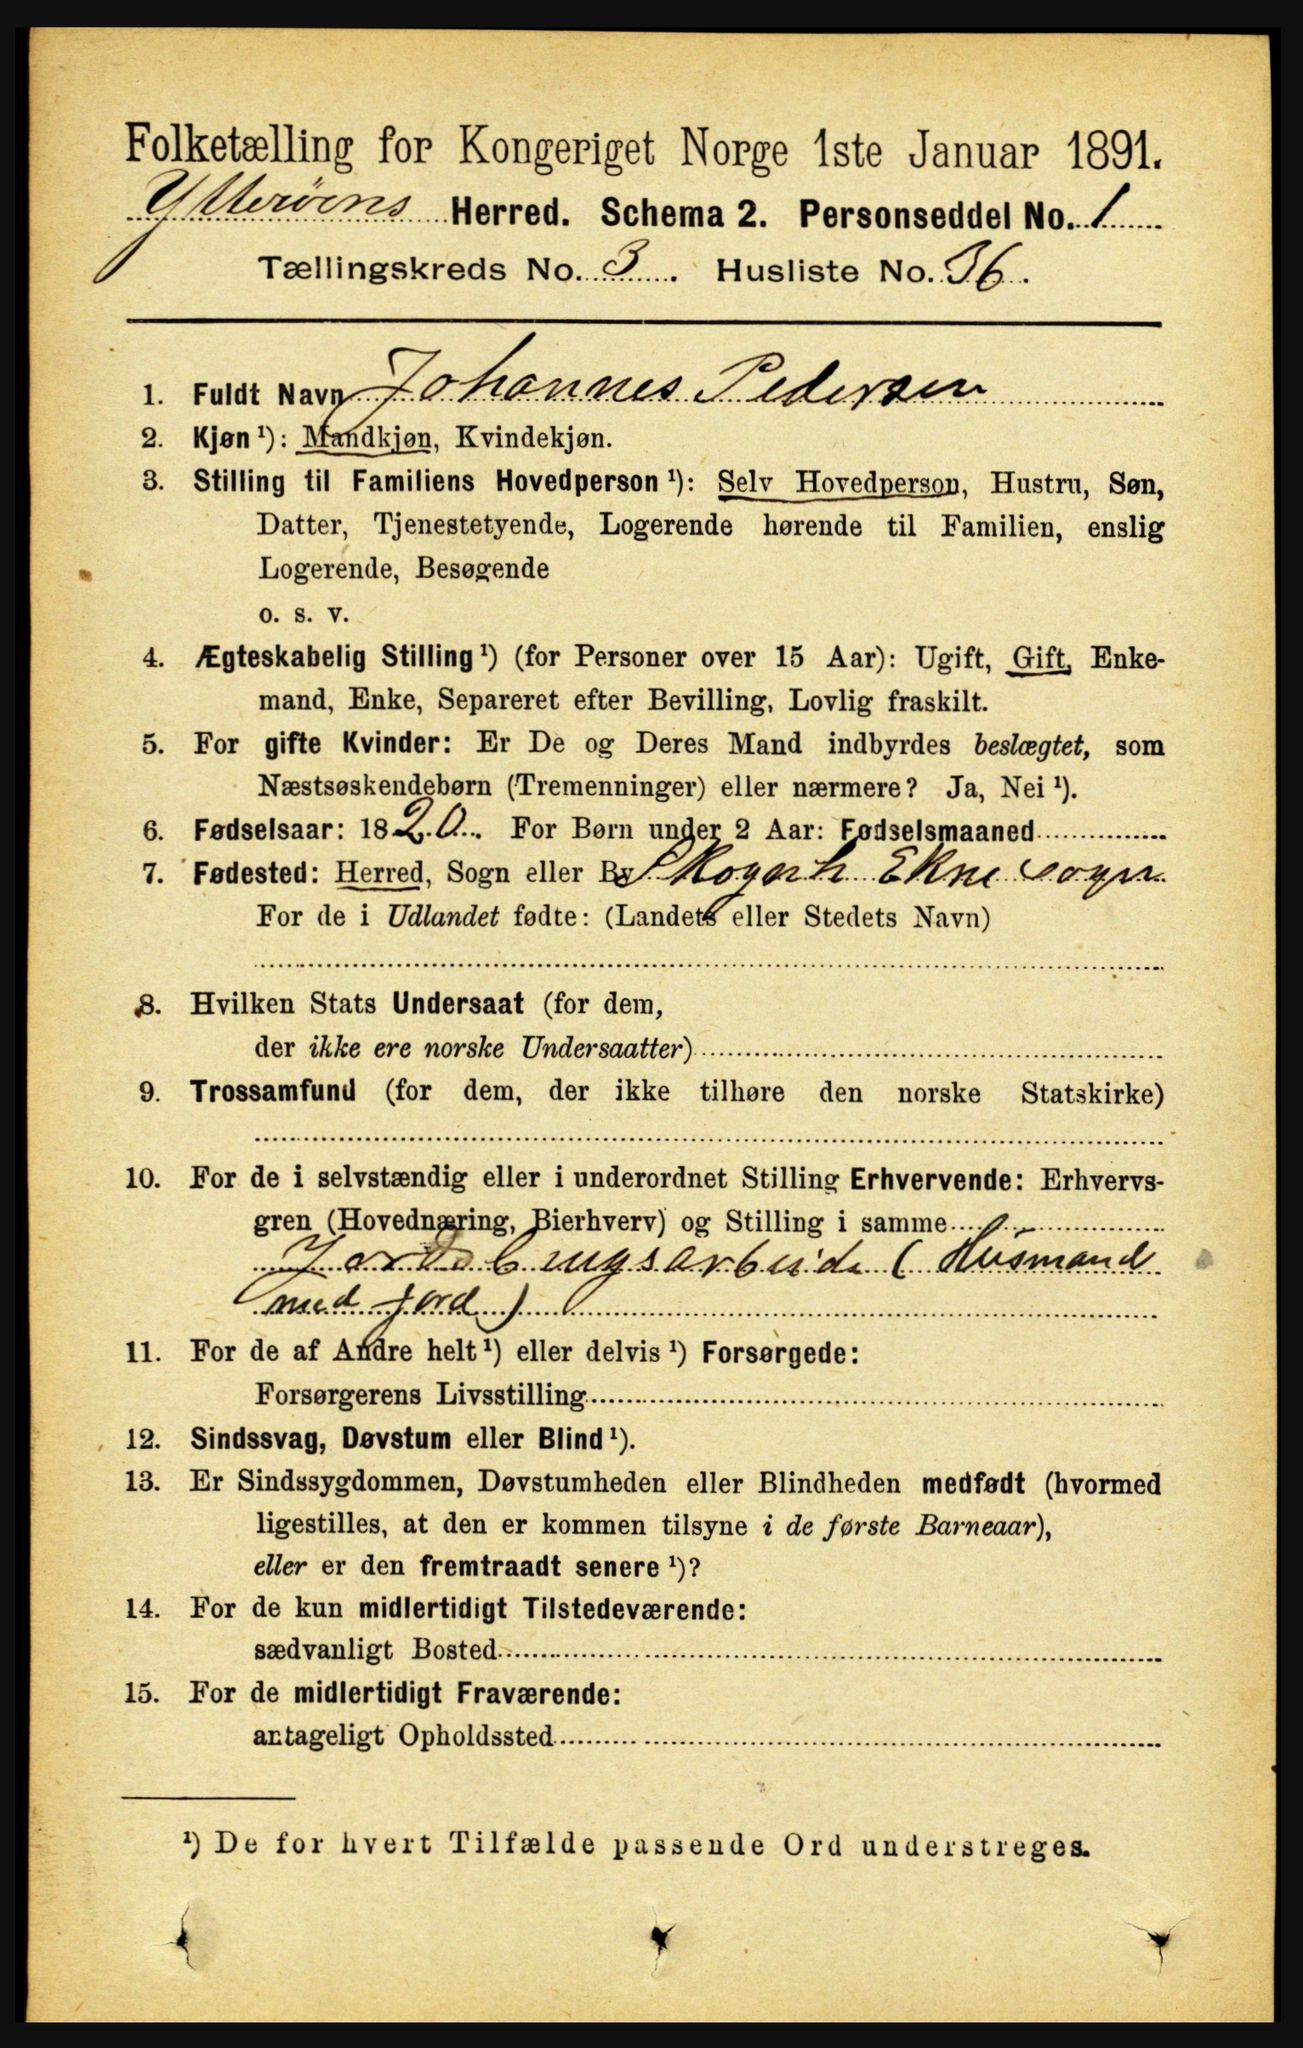 Folketælling for Kongeriget Norge 1ste Januar 1891.
Ytterøens Herred. Schema 2. Personseddel No. 1
Tællingskreds No. 3. Husliste No. 36.
1. Fuldt Navn Johannes Pedersen
2. Kjøn ¹): Mandkjøn, Kvindekjøn.
3. Stilling til Familiens Hovedperson ¹): Selv Hovedperson, Hustru, Søn,
Datter, Tjenestetyende, Logerende hørende til Familien, enslig
Logerende, Besøgende
o. s. v.
4. Ægteskabelig Stilling ¹) (for Personer over 15 Aar): Ugift, Gift, Enke-
mand, Enke, Separeret efter Bevilling, Lovlig fraskilt.
5. For gifte Kvinder: Er De og Deres Mand indbyrdes beslægtet, som
Næstsøskendebørn (Tremenninger) eller nærmere? Ja, Nei ¹).
6. Fødselsaar: 1820. For Børn under 2 Aar: Fødselsmaaned
7. Fødested: Herred, Sogn eller By Skognh Ekne sogn
For de i Udlandet fødte: (Landets eller Stedets Navn)
8. Hvilken Stats Undersaat (for dem,
der ikke ere norske Undersaatter)
9. Trossamfund (for dem, der ikke tilhøre den norske Statskirke)
10. For de i selvstændig eller i underordnet Stilling Erhvervende: Erhvervs-
gren (Hovednæring, Bierhverv) og Stilling i samme
Jordbrugsarbeide (Husmand
med jord)
11. For de af Andre helt ¹) eller delvis ¹) Forsørgede:
Forsørgerens Livsstilling
12. Sindssvag, Døvstum eller Blind ¹).
13. Er Sindssygdommen, Døvstumheden eller Blindheden medfødt (hvormed
ligestilles, at den er kommen tilsyne i de første Barneaar),
eller er den fremtraadt senere ¹)?
14. For de kun midlertidigt Tilstedeværende:
sædvanligt Bosted
15. For de midlertidigt Fraværende:
antageligt Opholdssted
¹) De for hvert Tilfælde passende Ord understreges.